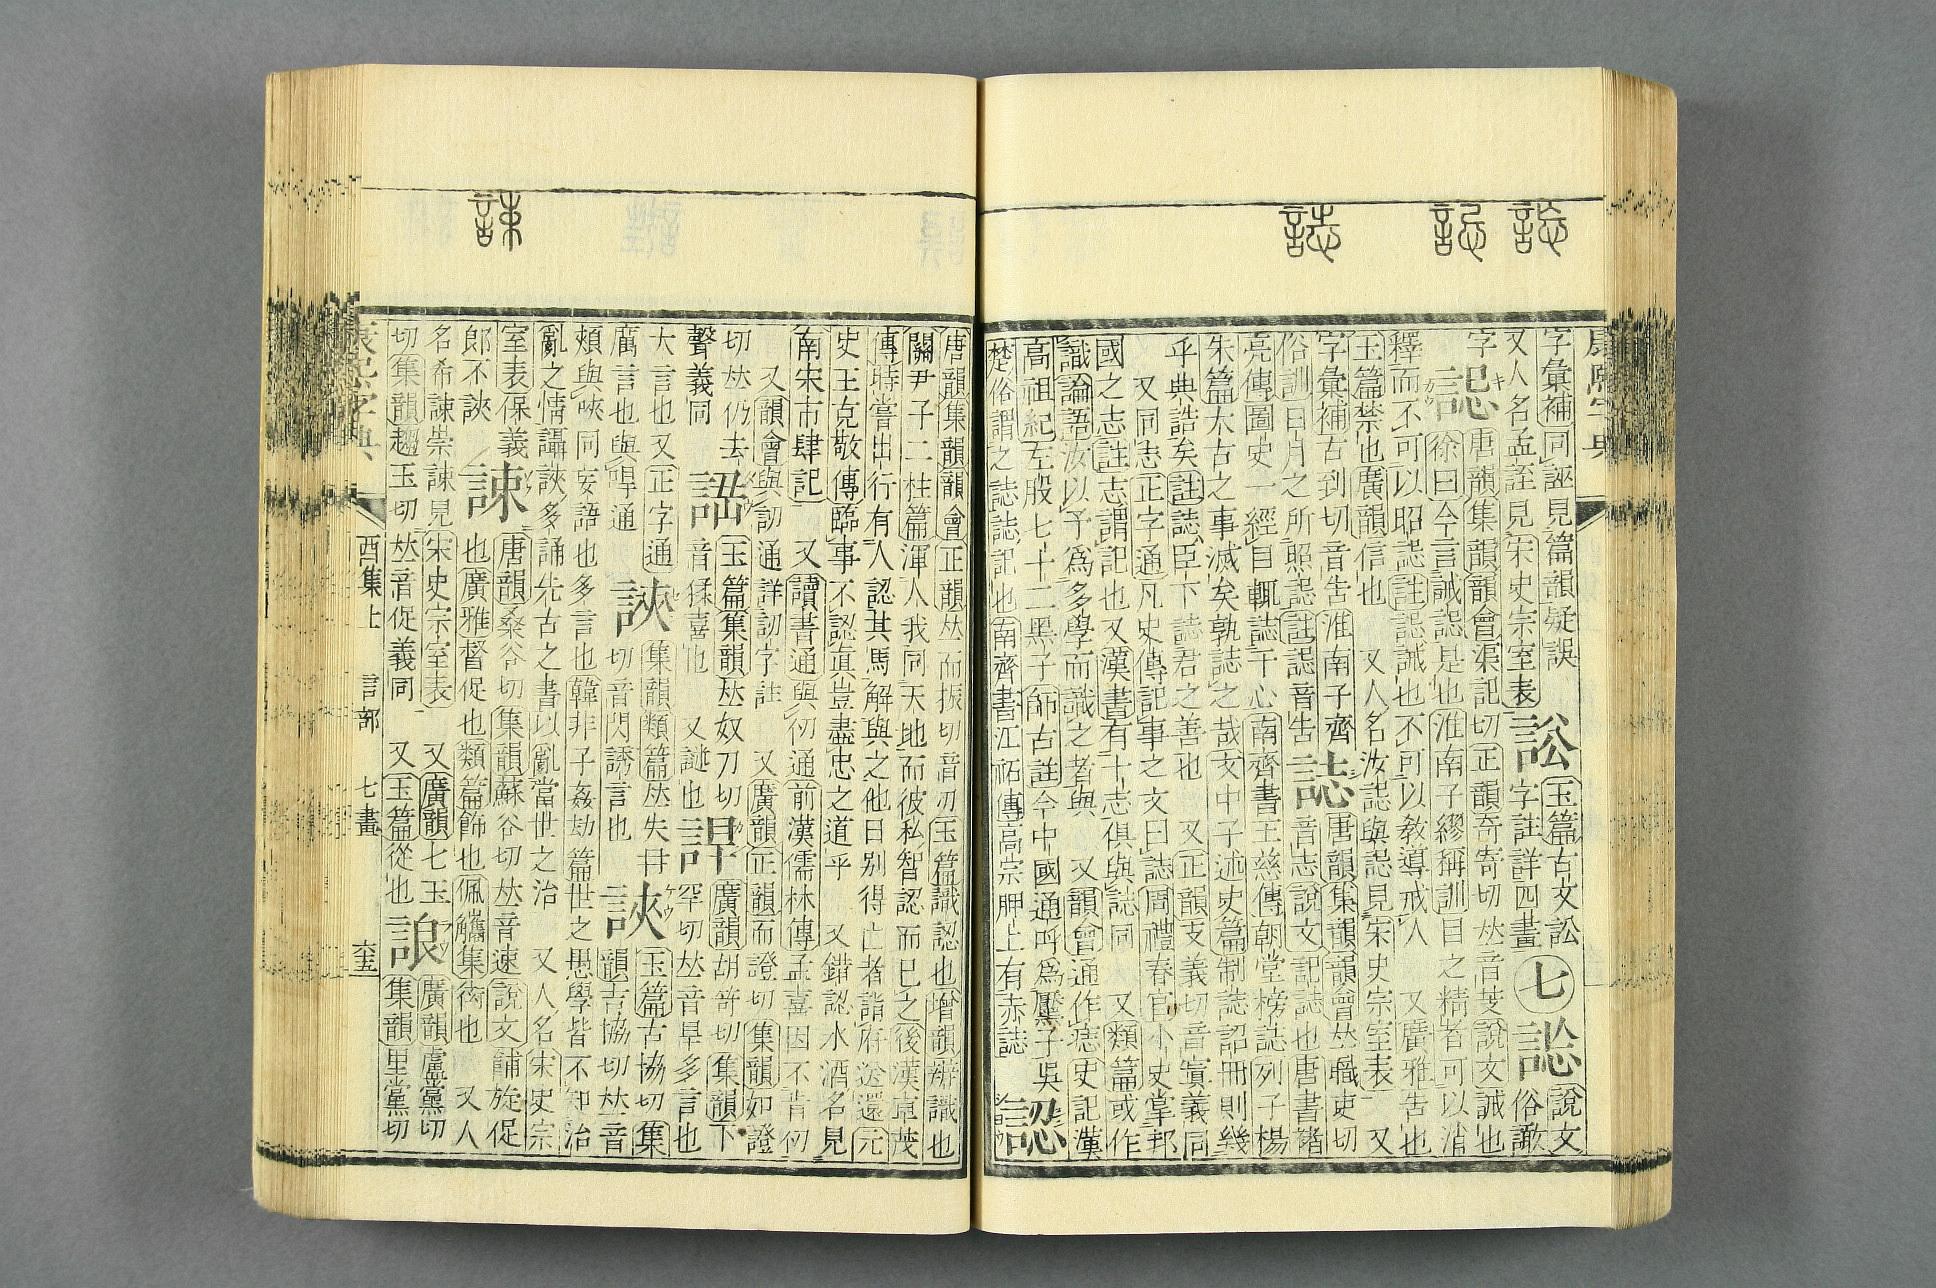 誌
康熙字典
字彙補同誣見篇韻疑誤 訟 玉篇古文訟 七 說文
又人名孟誣見宋史宗室表 字註詳四畫 俗譀
字 誋 唐韻集韻韻會渠記切正韻奇寄切𠀤音芰說文誡也
徐曰今言誡誋是也淮南子繆稱訓目之精者可以消
釋而不可以昭誋註誋誡也不可以敎導戒人 又廣雅告也
玉篇禁也廣韻信也 又人名汝誋與誋見宋史宗室表 又
字彙補古到切音告淮南子齊 誌 唐韻集韻韻會𠀤職吏切
俗訓日月之所照誋註誋音告 音志說文記誌也唐書褚
亮傳圖史一經目輒誌于心南齊書王慈傳朝堂榜誌列子楊
朱篇太古之事滅矣孰誌之哉文中子述史篇制誌詔冊則幾
乎典誥矣註誌臣下誌君之善也 又正韻支義切音寘義同
又同志正字通凡史傳記事之文曰誌周禮春官小史掌邦
國之志註志謂記也又漢書有十志俱與誌同 又類篇或作
識論語汝以予爲多學而識之者與 又韻會通作痣史記漢
高祖紀左股七十二黑子師古註今中國通呼爲黶子吳
楚俗謂之誌誌記也南齊書江祏傳高宗胛上有赤誌 認
唐韻集韻韻會正韻𠀤而振切音刃玉篇識認也增韻辨識也
關尹子二柱篇渾人我同天地而彼私智認而已之後漢卓茂
傳時嘗出行有人認其馬解與之他日別得亡者詣府送還元
史王克敬傳臨事不認眞豈盡忠之道乎 又錯認水酒名見
南宋市肆記 又讀書通與仞通前漢儒林傳孟喜因不肯仞
又韻會與訒通詳訒字註 又廣韻正韻而證切集韻如證
切𠀤仍去 玉篇集韻𠀤奴刀切 廣韻胡笴切集韻下
聲義同 音猱喜也 又謎也 罕切𠀤音旱多言也
大言也又正字通 集韻類篇𠀤失冉 䛟 玉篇古協切集
廣言也與 通 切音閃誘言也 韻吉協切𠀤音
頰與唊同妄語也多言也韓非子姦劫篇世之愚學皆不知治
亂之情讘䛟多誦先古之書以亂當世之治 又人名宋史宗
室表保義 誎 唐韻桑谷切集韻蘇谷切𠀤音速說文餔旋促
郎不䛟 也廣雅督促也類篇飾也佩觿集衒也 又人
名希誎崇誎見宋史宗室表 又廣韻七玉 誏 廣韻盧黨切
切集韻趨玉切𠀤音促義同 又玉篇從也 集韻里黨切
康熙字典 酉集上 言部 七畫